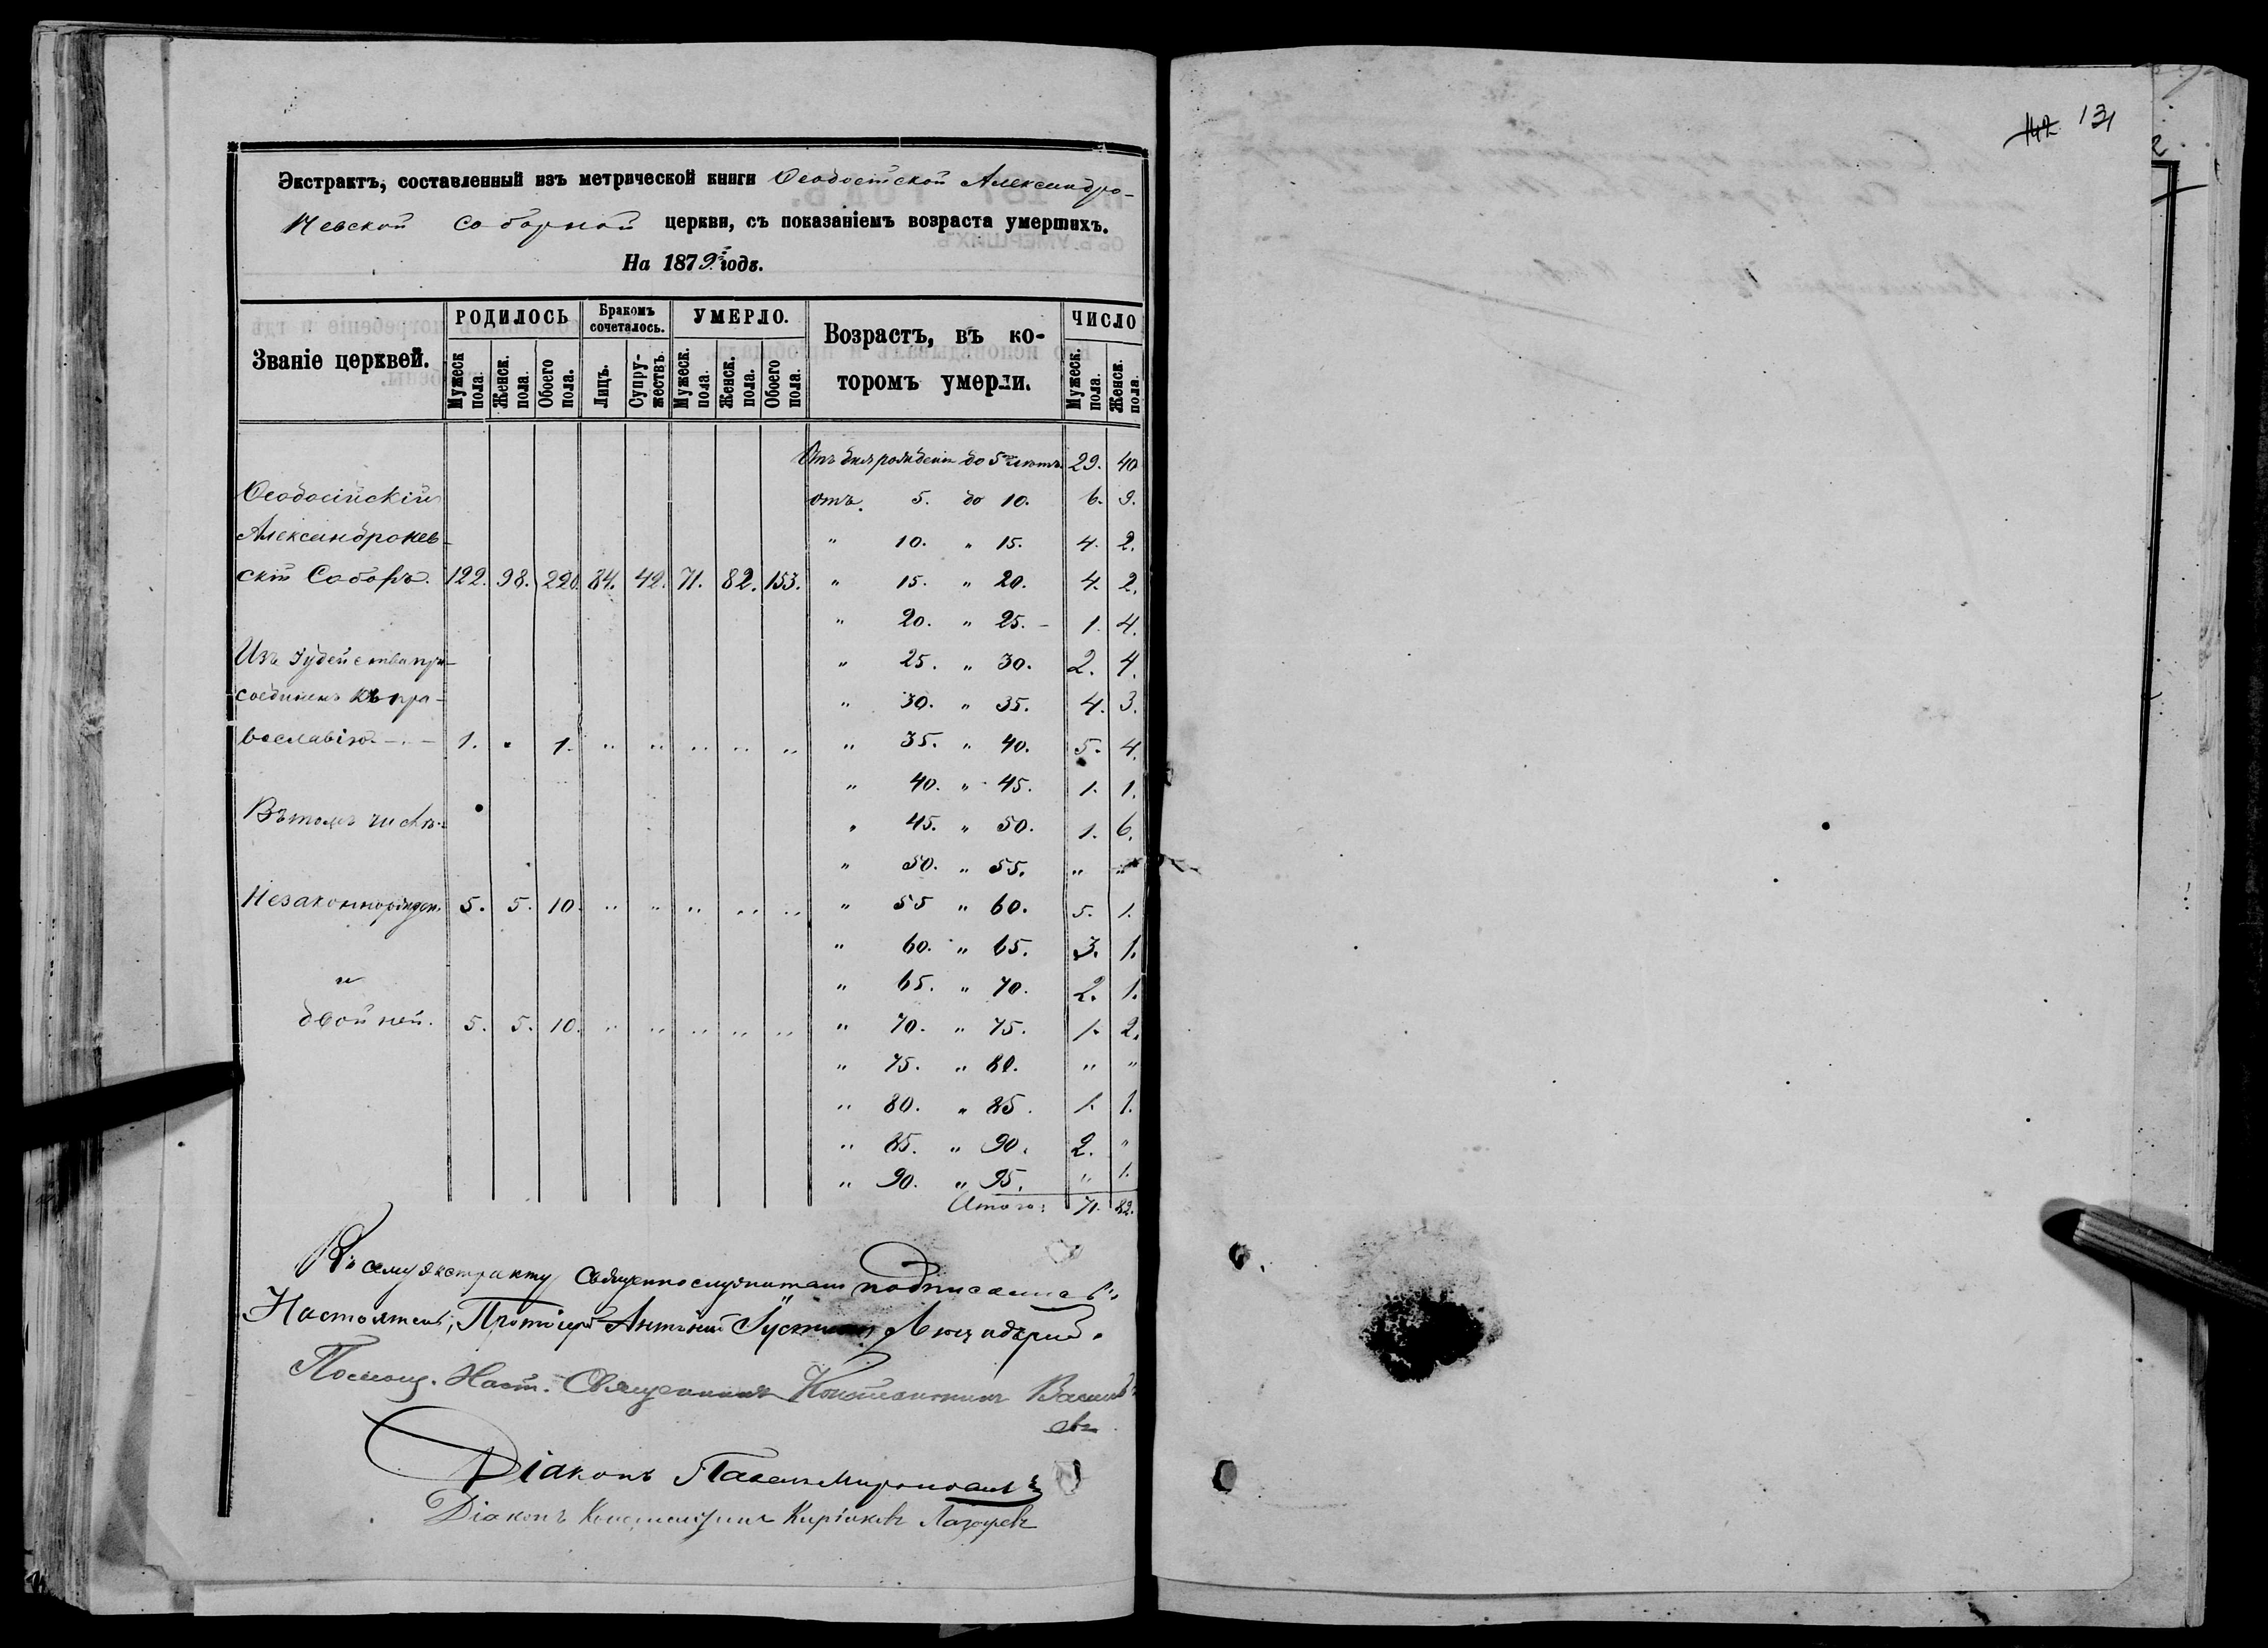 142 131
Экстрактъ, составленный изъ метрической книги Ѳеодосійской Александро-
Невской соборной церкви, съ показаніемъ возраста умершихъ.
На 1879й годъ.
Званіе церквей. РОДИЛОСЬ Бракомъ сочеталось. УМЕРЛО. Возрастъ, въ которомъ умерли. ЧИСЛО
Мужеск пола. Женск. пола. Обоего пола. Лицъ. Супружествъ. Мужеск. пола. Женск. пола. Обоего пола. Мужеск. пола. Женск. пола.
Отъ дня рожденія до 5 лѣтъ. 29. 40
Ѳеодосійскій отъ. 5. до 10. 6. 9.
Александронев- " 10. " 15. 4. 2.
скій Соборъ. 122. 98. 220. 84. 42. 71. 82. 153. " 15. " 20. 4. 2.
" 20. " 25. - 1. 4.
Изъ Іудейства при- " 25. " 30. 2. 4.
соединенъ къ пра- " 30. " 35. 4. 3.
вославію. - . - 1. " 1. " " " " " " 35. " 40. 5. 4.
" 40. " 45. 1. 1.
Въ томъ числѣ " 45. " 50. 1. 6.
" 50. " 55. " "
Незаконнорожден. 5. 5. 10. " " " " " " 55 " 60. 5. 1.
" 60. " 65. 3. 1.
и " 65. " 70. 2. 1.
двойней. 5. 5. 10. " " " " " " 70. " 75. 1. 2.
" 75. " 80. " "
" 80. " 85. 1. 1.
" 85. " 90. 2. "
" 90. " 95. " 1.
Итого: 71. 82.
Къ сему экстракту священнослужители подписались:
Настоятель, Протоіерей Антоній
Помощ. Наст. Священникъ Константинъ Василь
евъ
Діаконъ Павелъ
Діаконъ Константинъ Киріаковъ Лазаревъ